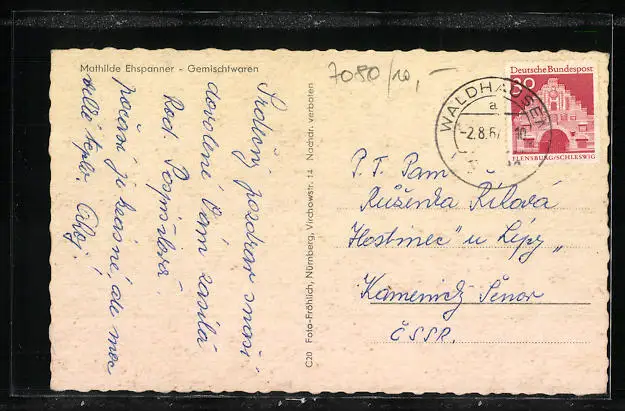 Mathilde Ehspanner - Gemischtwaren
7080/10,-
Srdečný pozdrav z naší
dovolené Vám zasílá
Rod. Pospíšilova
počasí je krásné, ale moc
velké teplo. Ahoj!
C20 Foto-Fröhlich, Nürnberg, Virchowstr. 14 Nachdr. verboten
Deutsche Bundespost
30
FLENSBURG/SCHLESWIG
WALDHAUSEN
a
-2.8.67
P. T. Paní
Růženka Rílová
Hostinec "u Lípy"
Kamenický Šenov
ČSSR.